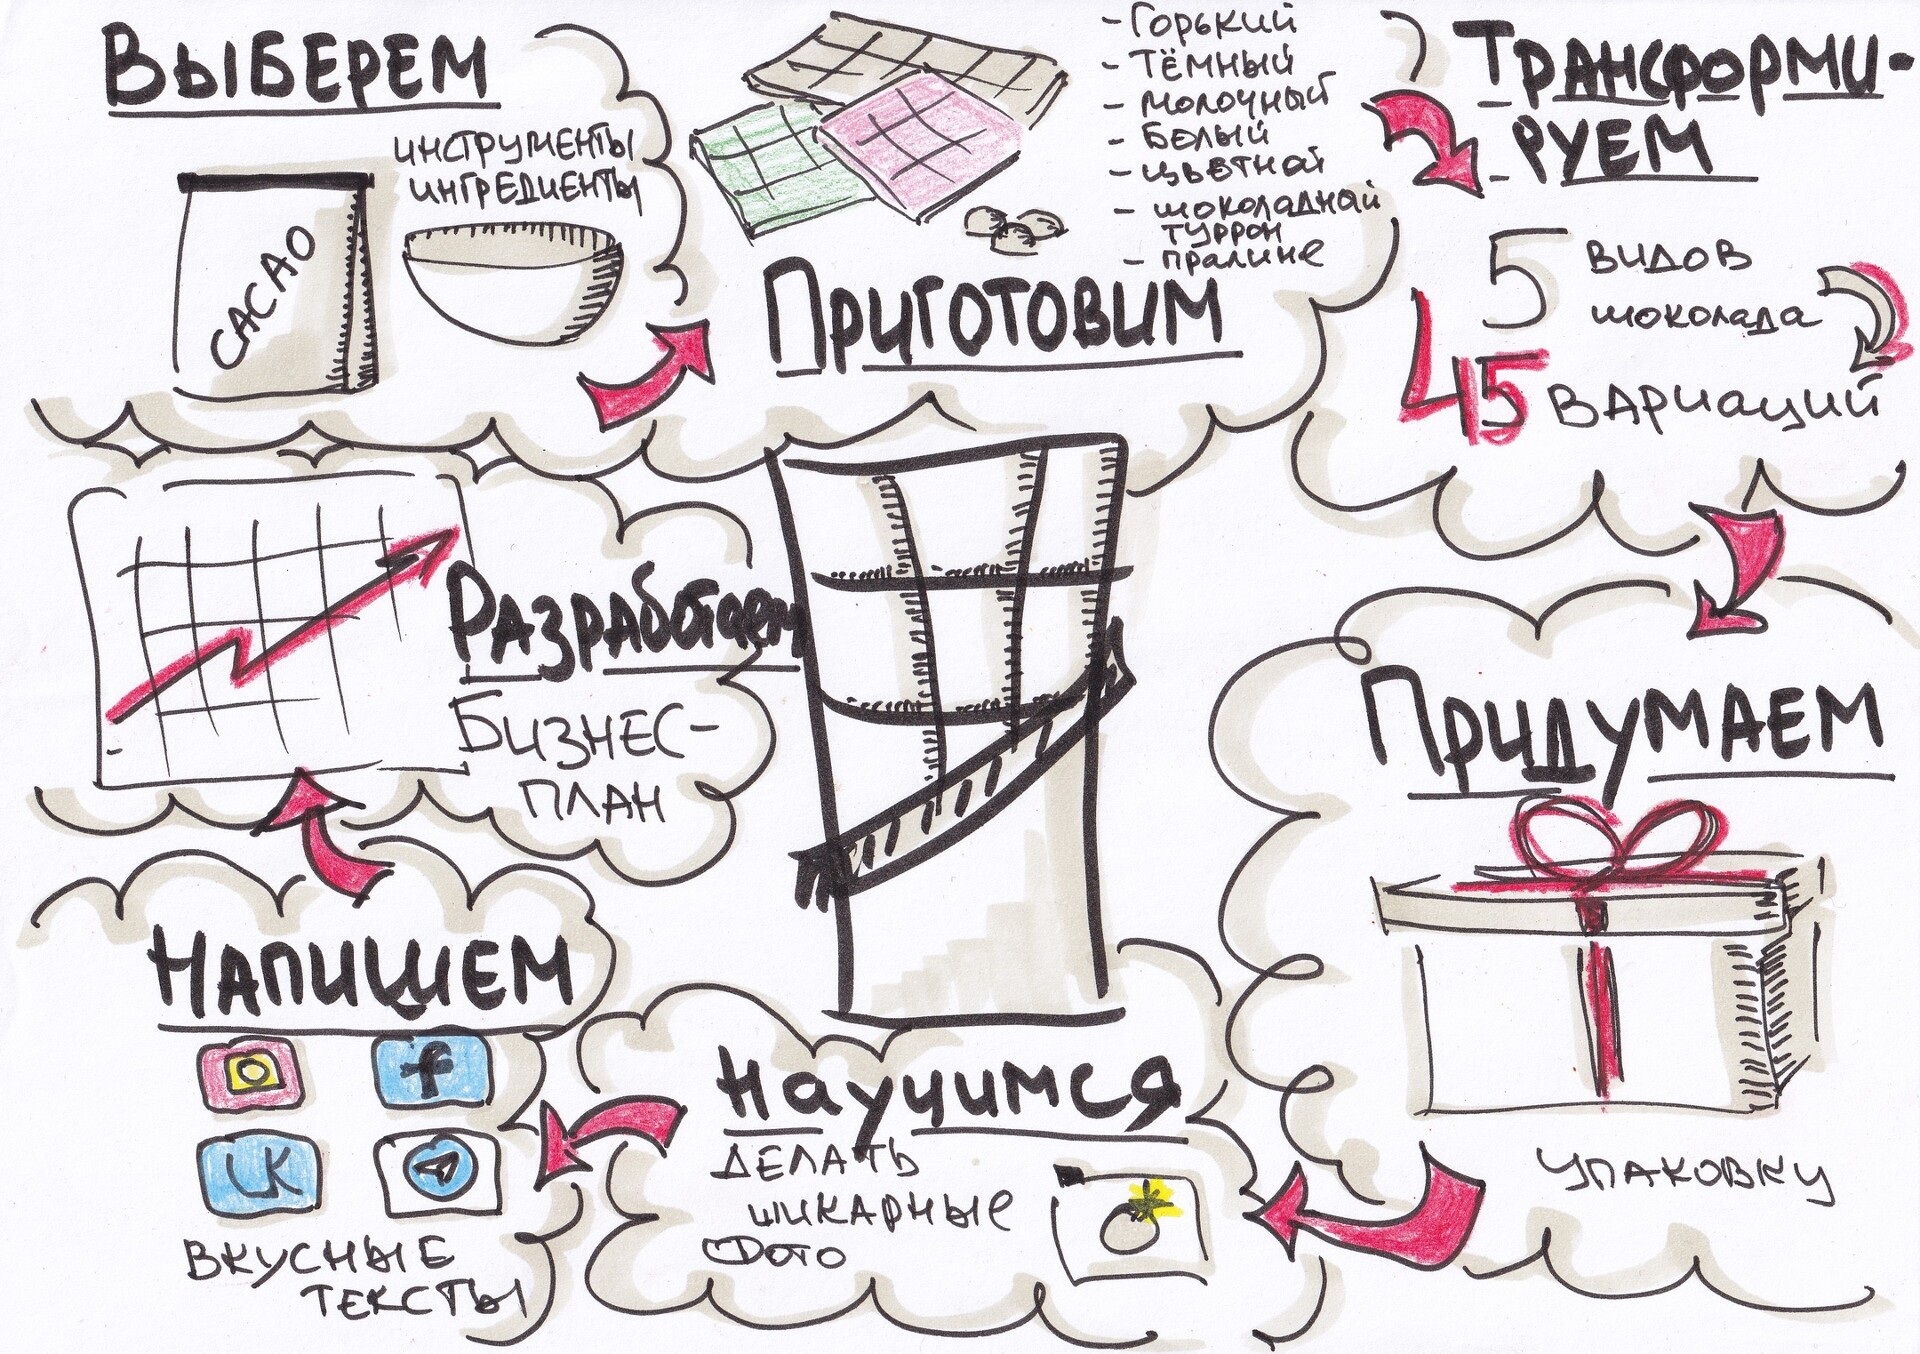 Выберем
инструменты
ингредиенты
CACAO
- Горький
- тёмный
- молочный
- белый
- цветной
- шоколадный
туррон
- пралине
Приготовим
Трансформи-
руем
5 видов
шоколада
45 вариаций
Придумаем
упаковку
Научимся
делать
шикарные
фото
Напишем
f
VK
вкусные
тексты
Разработаем
Бизнес-
план